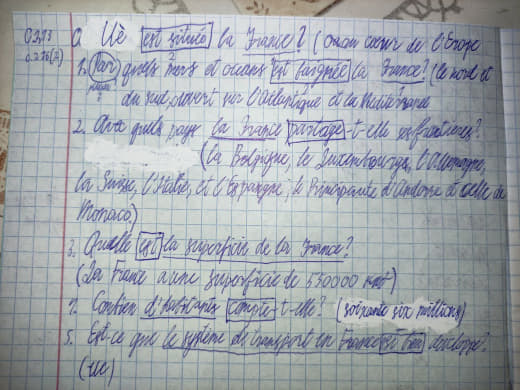 0. Uè est située la France? (au cœur de l'Europe
1. Par quels mers et océans est baignée la France? (le nord et
du sud, ouvert sur l'Atlantique et la Méditerranée
2. Avec quels pays la France partage-t-elle ses frontières?
(la Belgique, le Luxembourg, l'Allemagne,
la Suisse, l'Italie, et l'Espagne, le Principauté d'Andorre et celle de
Monaco)
3. Quelle est la superficie de la France?
(La France a une superficie de 550000 km²)
4. Combien d'habitants compte-t-elle? (soixante six millions)
5. Est-ce que le système de transport en France est bien développé?